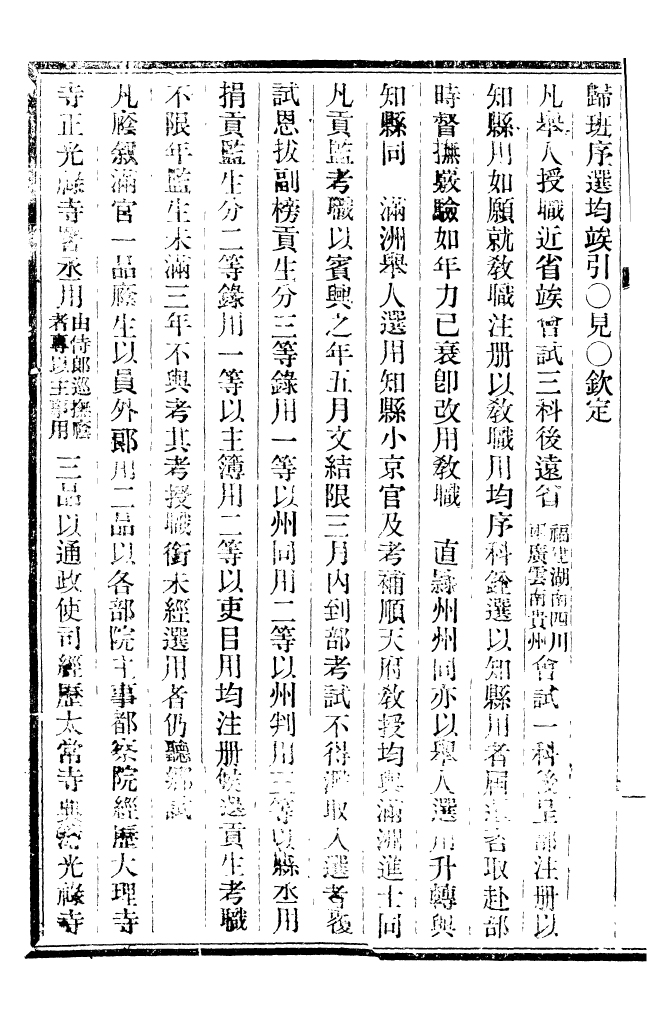 歸班序選均竢引○見○欽定
凡舉人授職近省竢會試三科後遠省福建湖南四川兩廣雲南貴州會試一科後呈部注册以
知縣用如願就敎職注册以敎職用均序科銓選以知縣用者屆選者取赴部
時督撫嚴驗如年力已衰卽改用敎職　直隸州州同亦以舉人選用升轉與
知縣同　滿洲舉人選用知縣小京官及考補順天府敎授均與滿洲進士同
凡貢監考職以賓興之年五月文結限三月內到部考試不得濫取入選者覆
試恩拔副榜貢生分三等錄用一等以州同用二等以州判用三等以縣丞用
捐貢監生分二等錄用一等以主簿用二等以吏目用均注册候選貢生考職
不限年監生未滿三年不與考其考授職銜未經選用者仍聽鄉試
凡廕敘滿官一品廕生以員外郞用二品以各部院主事都察院經歷大理寺
寺正光祿寺署丞用由侍郞巡撫廕者專以主事用　三品以通政使司經歷太常寺典簿光祿寺